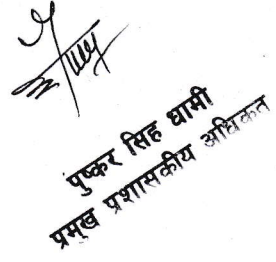 पुष्कर सिंह धामी
प्रमुख प्रशासकीय अधिकत